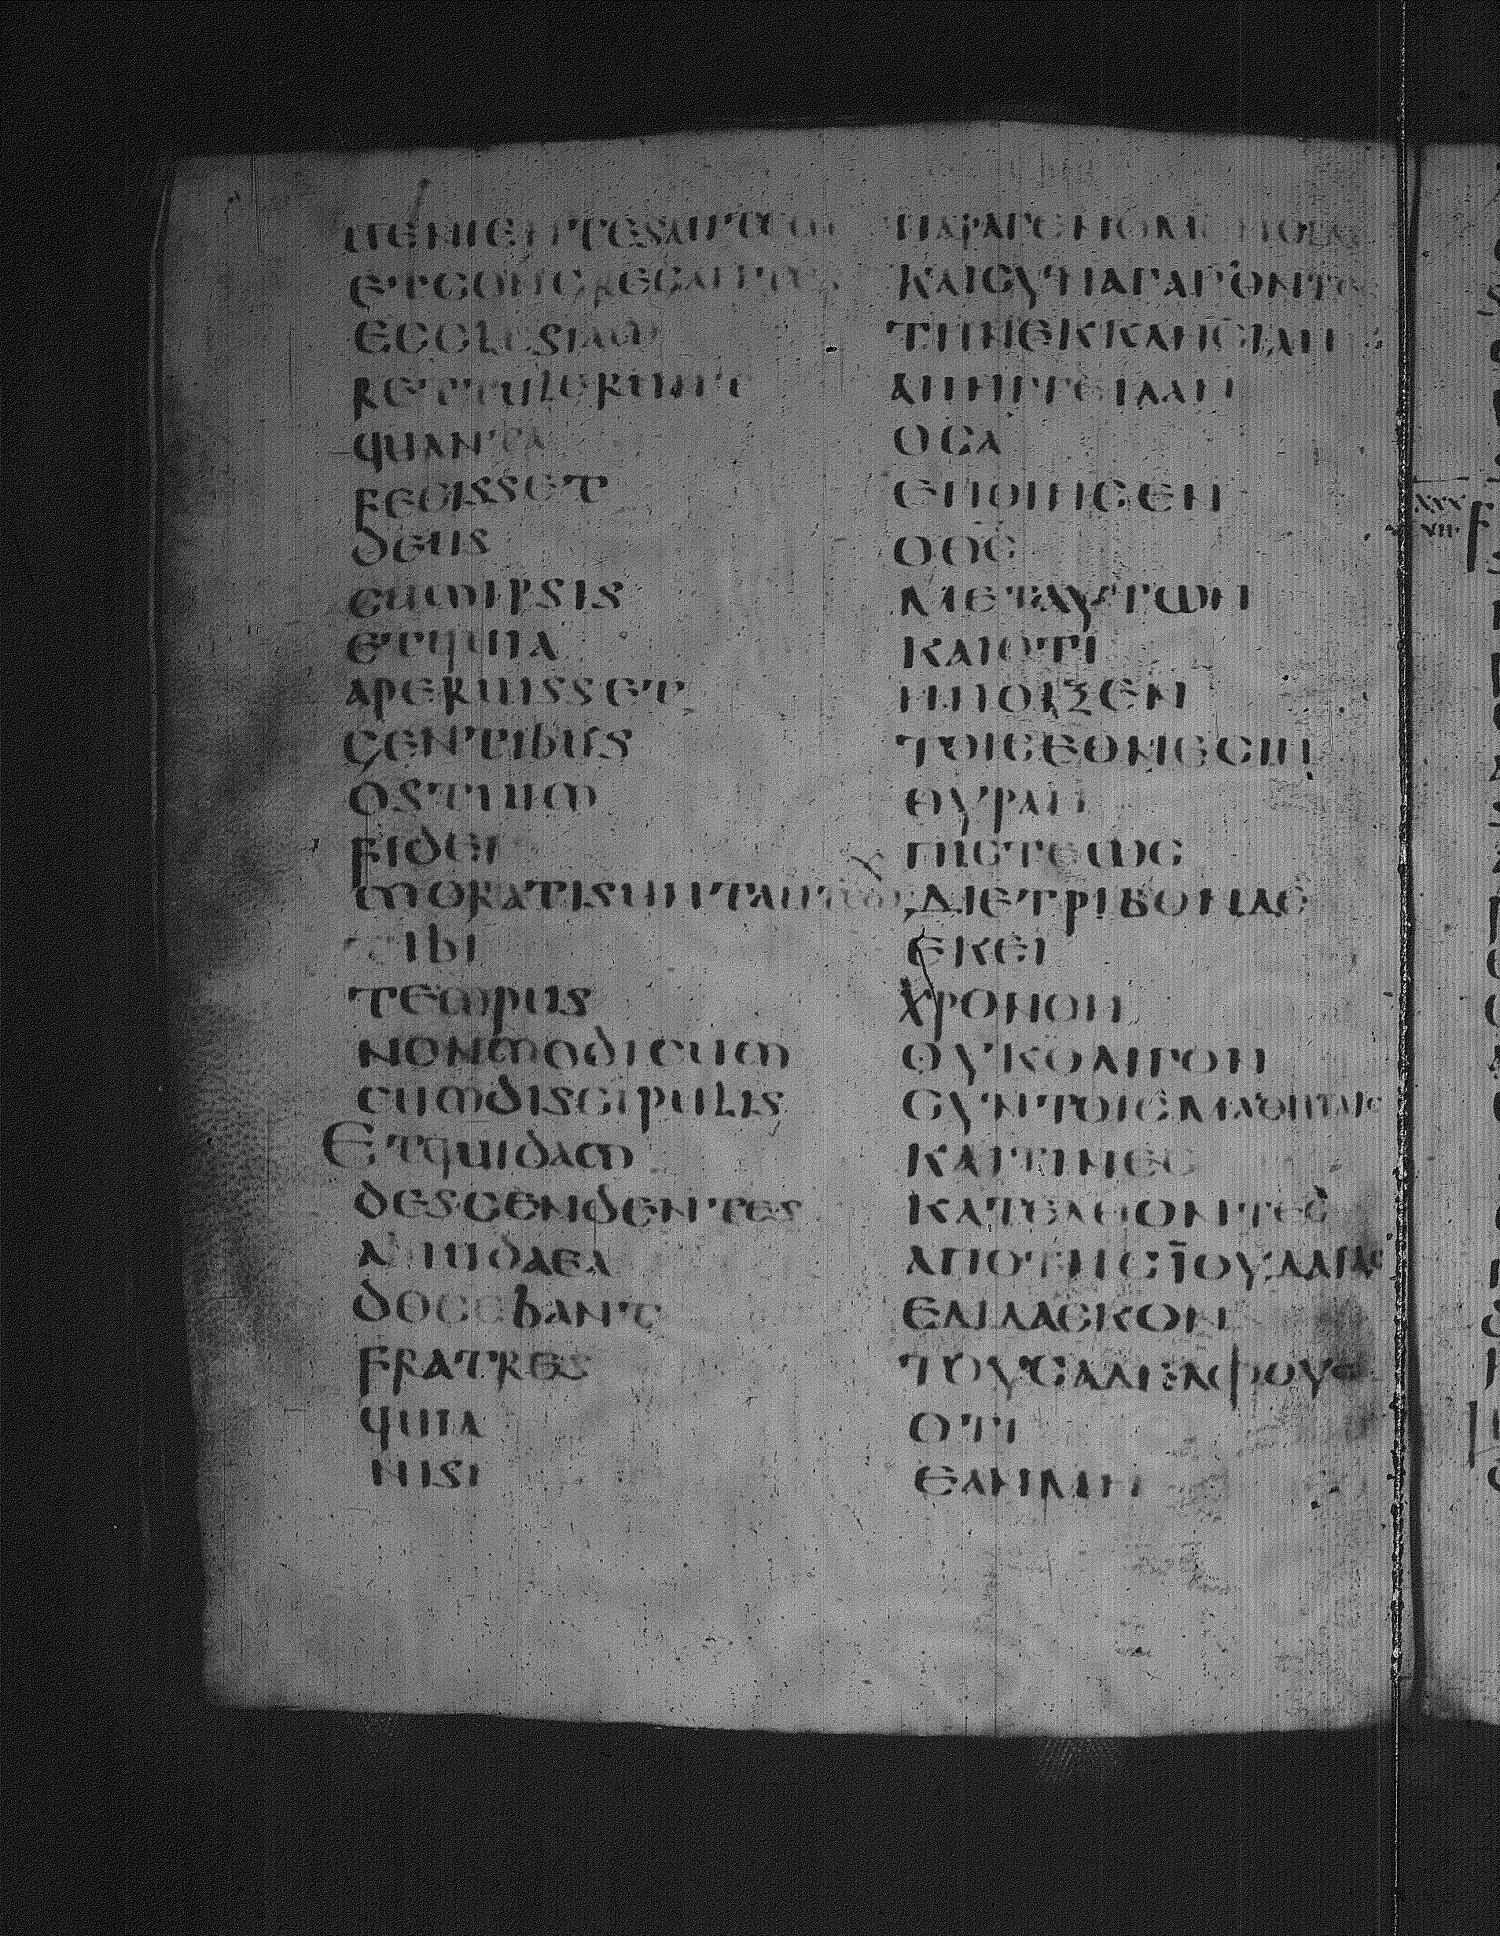 UENIENTESAUTEM
ETCONGREGANTES
ECCLESIAM
RETTULERUNT
QUANTA
FECISSET
DEUS
CUMIPSIS
ETQUIA
APERUISSET
GENTIBUS
OSTIUM
FIDEI
MORATISUNTAUTEM
IBI
TEMPUS
NONMODICUM
CUMDISCIPULIS
ETQUIDAM
DESCENDENTES
AIUDAEA
DOCEBANT
FRATRES
QUIA
NISI
ΠΑΡΑΓΕΝΟΜΕΝΟΙΔΕ
ΚΑΙϹΥΝΑΓΑΓΟΝΤΕϹ
ΤΗΝΕΚΚΛΗϹΙΑΝ
ΑΠΗΓΓΕΙΛΑΝ
ΟϹΑ
ΕΠΟΙΗϹΕΝ
ΟΘϹ
ΜΕΤΑΥΤΩΝ
ΚΑΙΟΤΙ
ΗΝΟΙΞΕΝ
ΤΟΙϹΕΘΝΕϹΙΝ
ΘΥΡΑΝ
ΠΙϹΤΕΩϹ
ΔΙΕΤΡΙΒΟΝΔΕ
ΕΚΕΙ
ΧΡΟΝΟΝ
ΟΥΚΟΛΙΓΟΝ
ϹΥΝΤΟΙϹΜΑΘΗΤΑΙϹ
ΚΑΙΤΙΝΕϹ
ΚΑΤΕΛΘΟΝΤΕϹ
ΑΠΟΤΗϹΪΟΥΔΑΙΑϹ
ΕΔΙΔΑϹΚΟΝ
ΤΟΥϹΑΔΕΛΦΟΥϹ
ΟΤΙ
ΕΑΝΜΗ
XXX
VII·